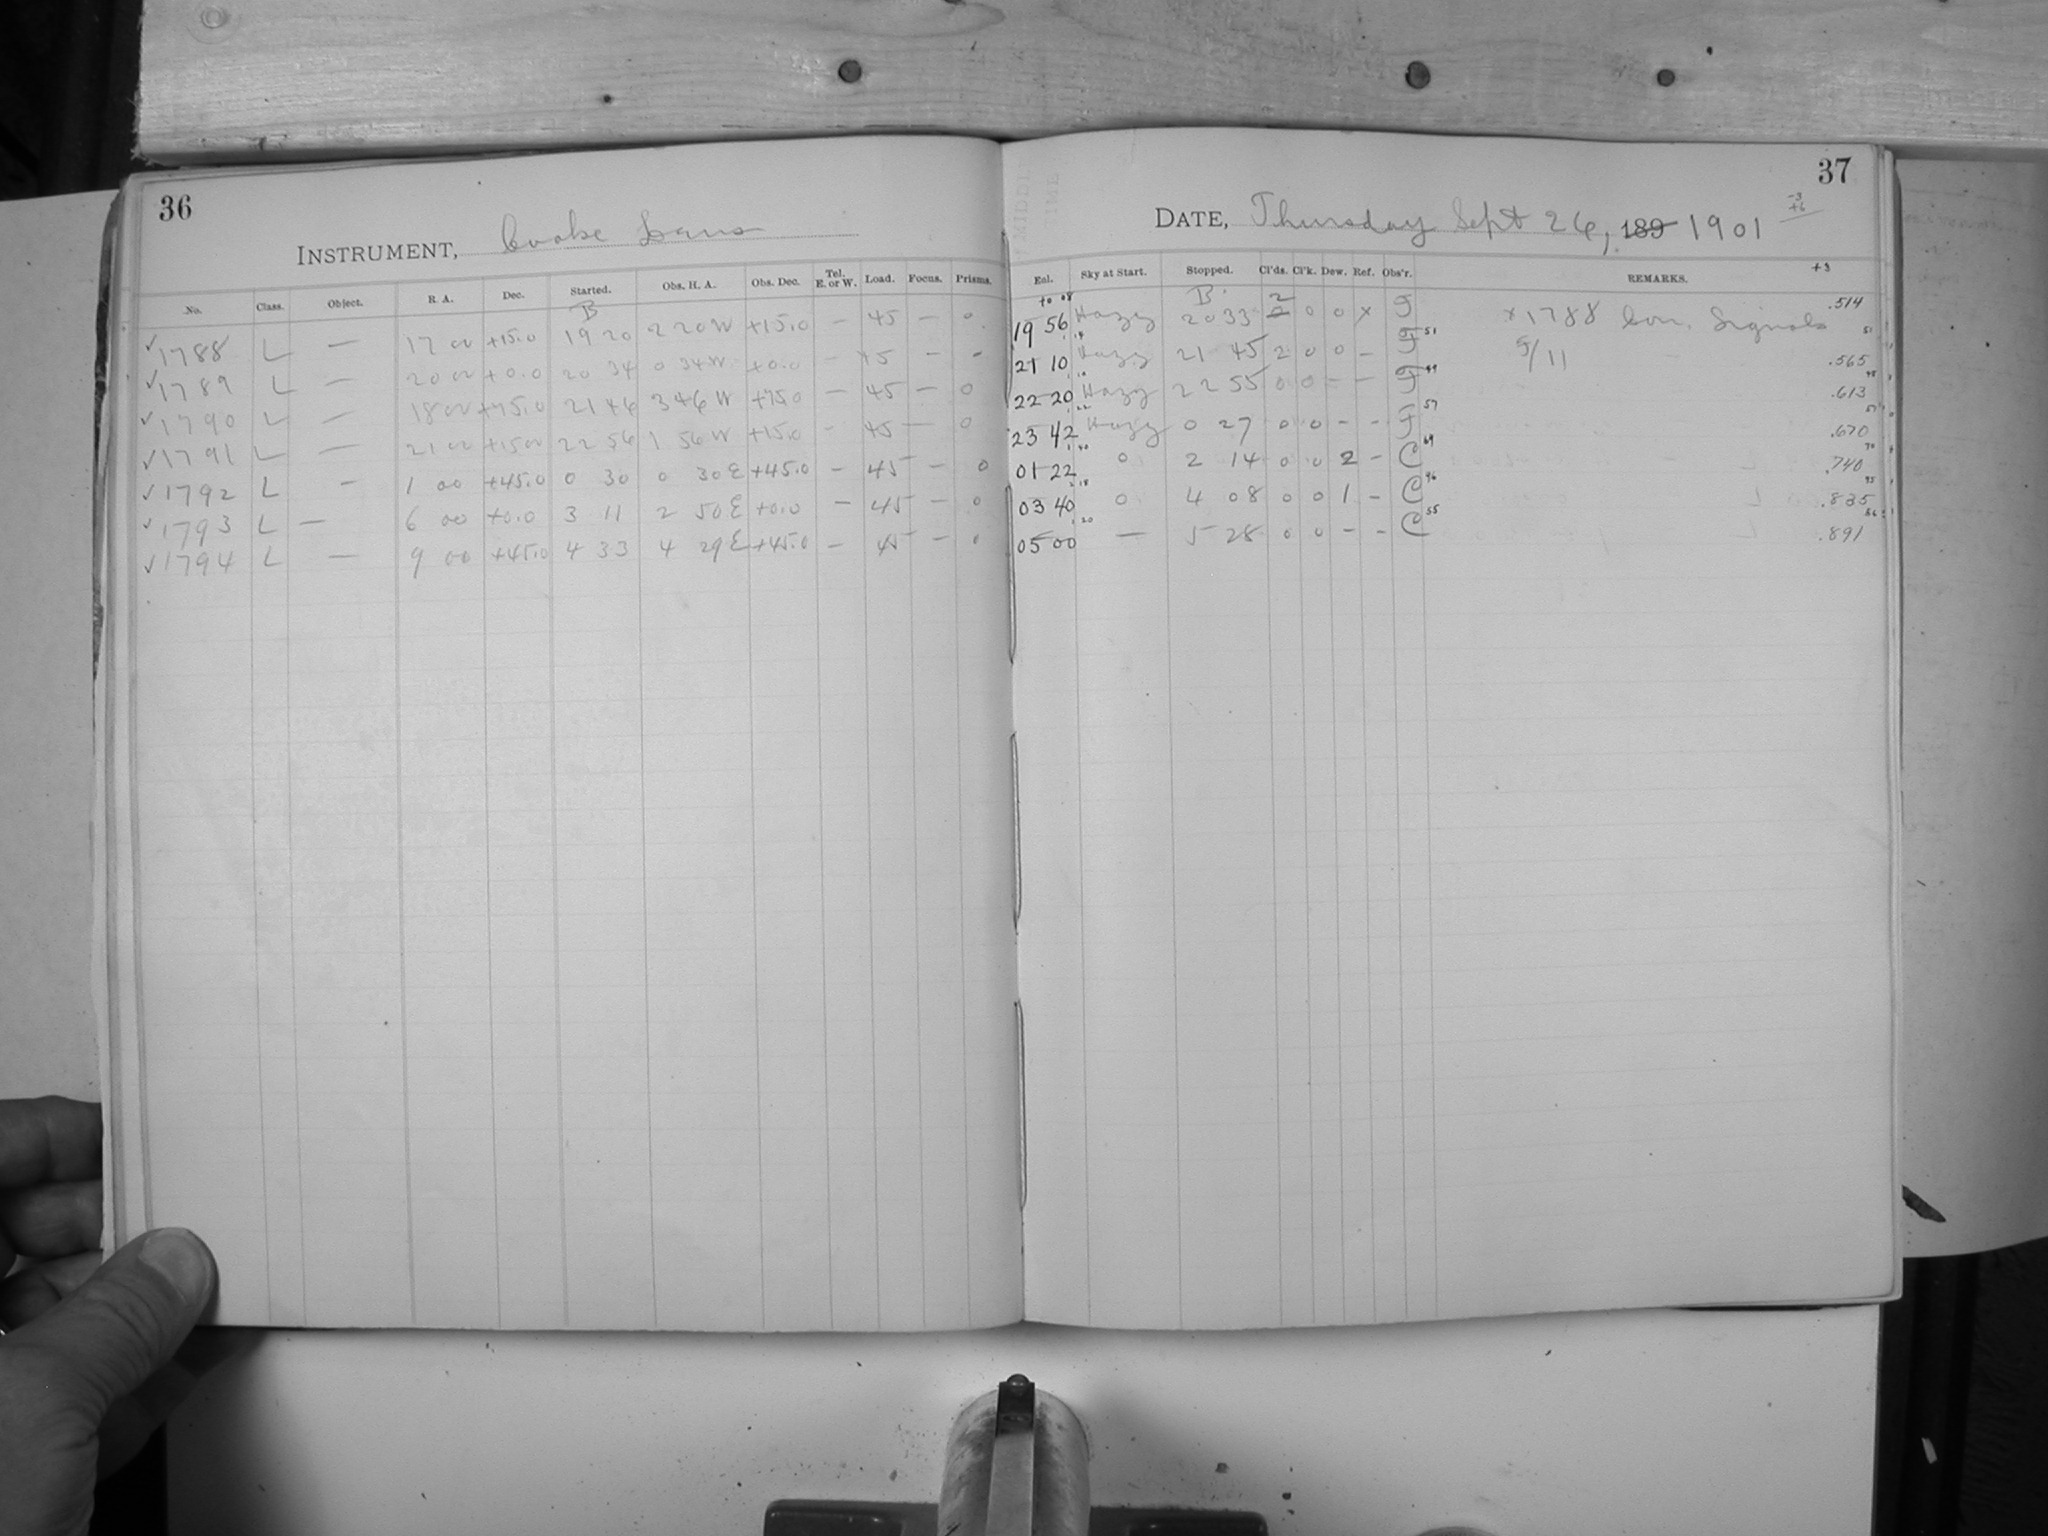 36
INSTRUMENT, Cooke Lens
No. Class. Object. R. A. Dec. Started. Obs. H. A. Obs. Dec. Tel. E. or W. Load. Focus. Prisms.
B
✓1788 L — 17 00 +15.0 19 20 2 20 W +15.0 — 45 — 0
✓1789 L — 20 00 +0.0 20 34 0 34 W +0.0 — 45 — 0
✓1790 L — 18 00 +75.0 21 46 3 46 W +75.0 — 45 — 0
✓1791 L — 21 00 +15.00 22 56 1 56 W +15.0 — 45 — 0
✓1792 L — 1 00 +45.0 0 30 0 30 E +45.0 — 45 — 0
✓1793 L — 6 00 +0.0 3 11 2 50 E +0.0 — 45 — 0
✓1794 L — 9 00 +45.0 4 33 4 29 E +45.0 — 45 — 0
37
DATE, Thursday Sept 26, 189 1901
-3
+6
+3
Enl. Sky at Start. Stopped. Cl'ds. Cl'k. Dew. Ref. Obs'r. REMARKS.
B.
19 56 Hazy 20 33 2 0 0 x F x 1788 Con. Signals .514
21 10 Hazy 21 45 2 0 0 — F 51 5/11 .565
22 20 Hazy 22 55 0 0 — — F 49 .613
23 42 Hazy 0 27 0 0 — — F 57 .670
01 22 0 2 14 0 0 2 — C 69 .740
03 40 0 4 08 0 0 1 — C 96 .835
05 00 — 5 28 0 0 — — C 55 .891